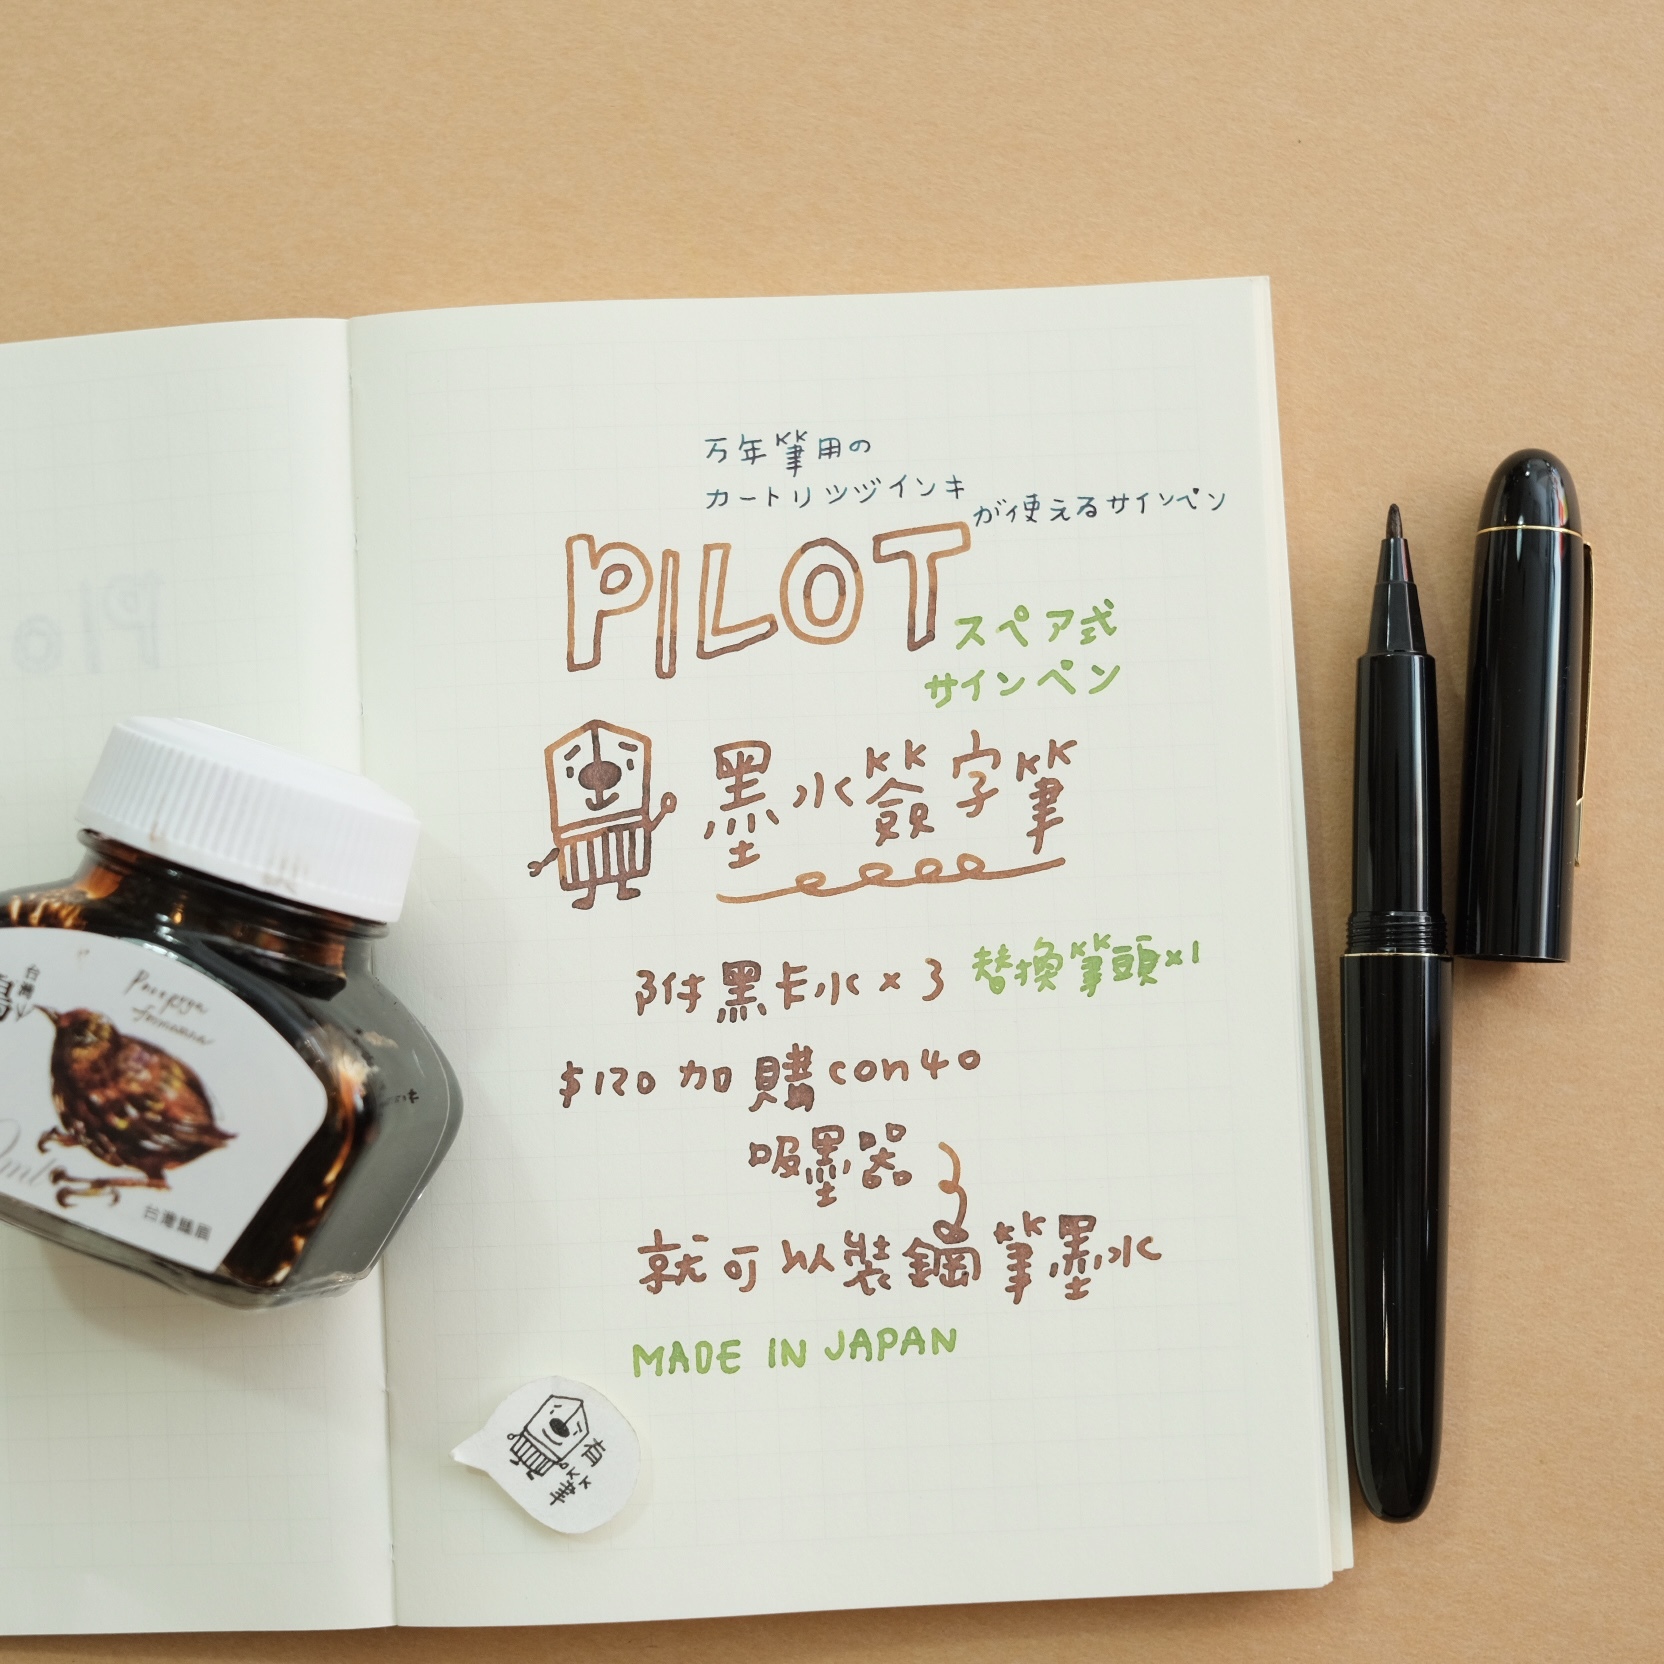 万年筆用の
カートリッヅインキ
が使えるサインペン
PILOT
スペア式
サインペン
墨水簽字筆
附黑卡水×3 替換筆頭×1
$120 加購con40
吸墨器
就可以裝鋼筆墨水
MADE IN JAPAN
有筆
台灣
台灣藍眉